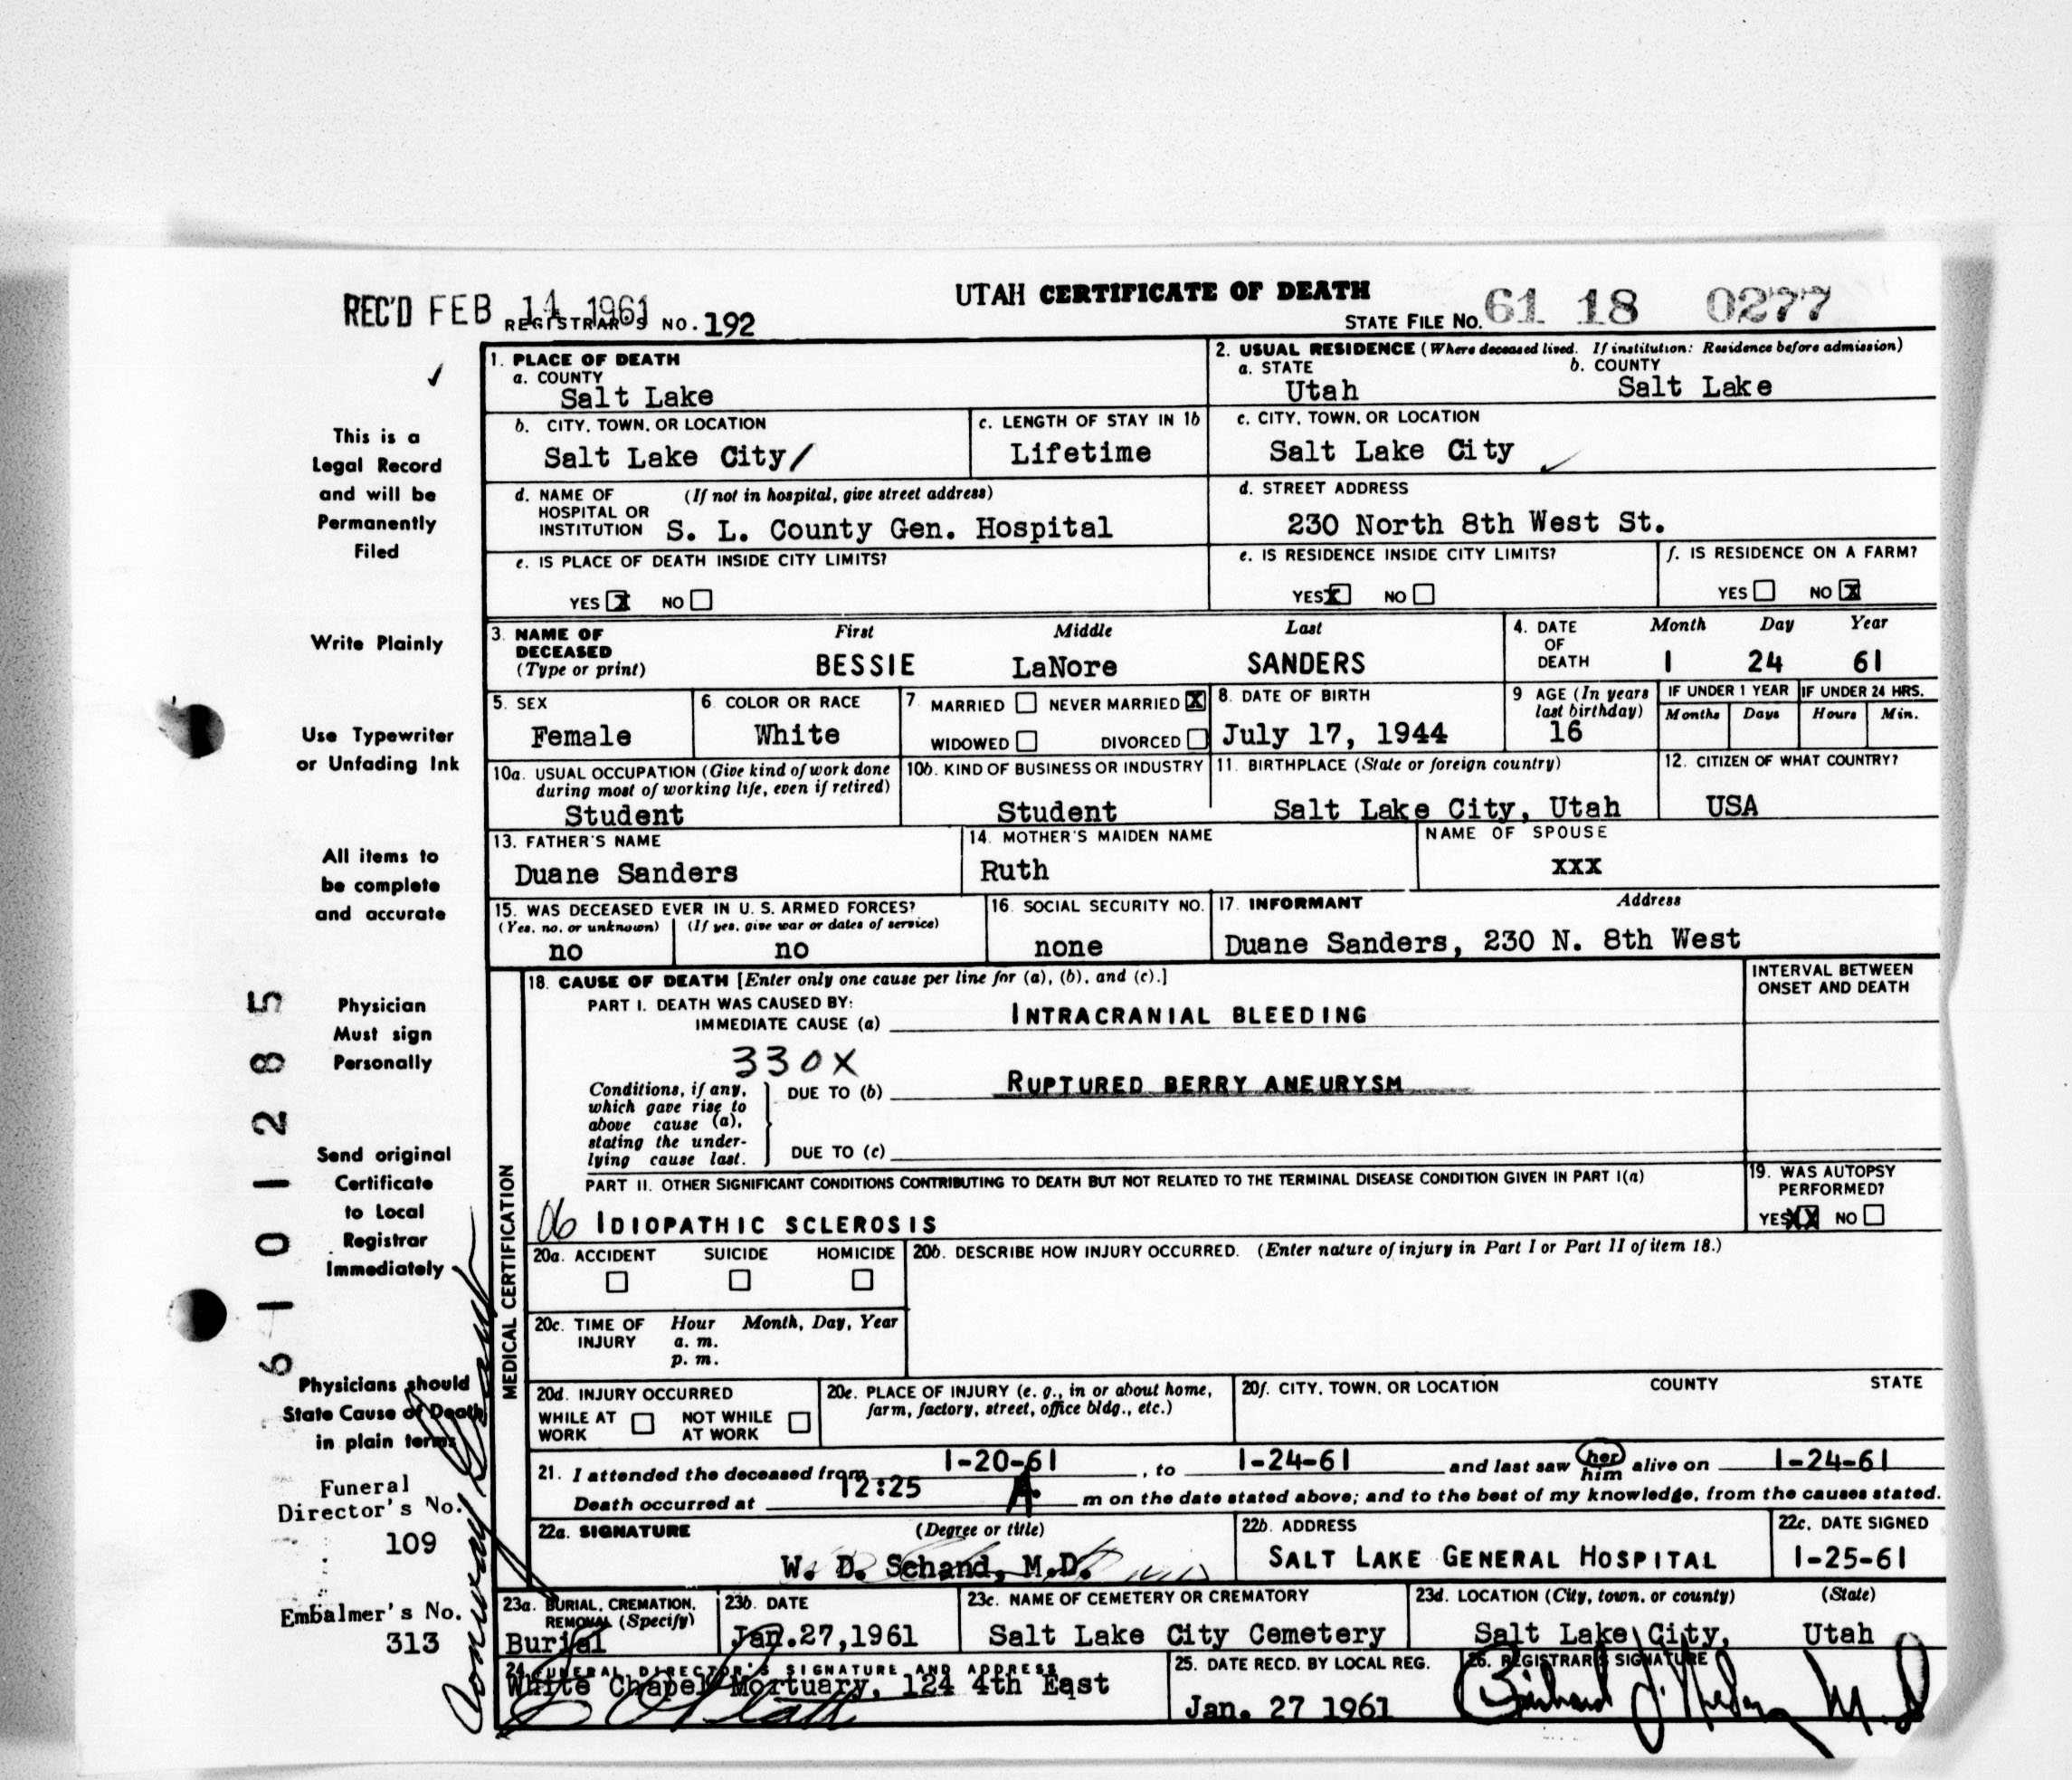 REC'D FEB 14 1961
UTAH CERTIFICATE OF DEATH
REGISTRAR'S NO. 192
STATE FILE NO. 61 18 0277
1. PLACE OF DEATH
a. COUNTY
Salt Lake
2. USUAL RESIDENCE (Where deceased lived. If institution: Residence before admission)
a. STATE b. COUNTY
Utah Salt Lake
b. CITY, TOWN, OR LOCATION
Salt Lake City/
c. LENGTH OF STAY IN 1b
Lifetime
c. CITY, TOWN, OR LOCATION
Salt Lake City
d. NAME OF (If not in hospital, give street address)
HOSPITAL OR
INSTITUTION S. L. County Gen. Hospital
d. STREET ADDRESS
230 North 8th West St.
e. IS PLACE OF DEATH INSIDE CITY LIMITS?
YES X NO
e. IS RESIDENCE INSIDE CITY LIMITS?
YES X NO
f. IS RESIDENCE ON A FARM?
YES NO X
3. NAME OF DECEASED (Type or print)
First Middle Last
BESSIE LaNore SANDERS
4. DATE OF DEATH
Month Day Year
1 24 61
5. SEX
Female
6. COLOR OR RACE
White
7. MARRIED NEVER MARRIED X
WIDOWED DIVORCED
8. DATE OF BIRTH
July 17, 1944
9 AGE (In years last birthday)
16
IF UNDER 1 YEAR IF UNDER 24 HRS.
Months Days Hours Min.
10a. USUAL OCCUPATION (Give kind of work done
during most of working life, even if retired)
Student
10b. KIND OF BUSINESS OR INDUSTRY
Student
11. BIRTHPLACE (State or foreign country)
Salt Lake City, Utah
12. CITIZEN OF WHAT COUNTRY?
USA
13. FATHER'S NAME
Duane Sanders
14. MOTHER'S MAIDEN NAME
Ruth
NAME OF SPOUSE
xxx
15. WAS DECEASED EVER IN U. S. ARMED FORCES?
(Yes, no, or unknown) (If yes, give war or dates of service)
no no
16. SOCIAL SECURITY NO.
none
17. INFORMANT Address
Duane Sanders, 230 N. 8th West
MEDICAL CERTIFICATION
18. CAUSE OF DEATH [Enter only one cause per line for (a), (b), and (c).]
INTERVAL BETWEEN
ONSET AND DEATH
PART I. DEATH WAS CAUSED BY:
IMMEDIATE CAUSE (a) INTRACRANIAL BLEEDING
330X
Conditions, if any,
which gave rise to
above cause (a),
stating the under-
lying cause last.
DUE TO (b) RUPTURED BERRY ANEURYSM
DUE TO (c)
PART II. OTHER SIGNIFICANT CONDITIONS CONTRIBUTING TO DEATH BUT NOT RELATED TO THE TERMINAL DISEASE CONDITION GIVEN IN PART I(a)
06 IDIOPATHIC SCLEROSIS
19. WAS AUTOPSY
PERFORMED?
YES XX NO
20a. ACCIDENT SUICIDE HOMICIDE
20b. DESCRIBE HOW INJURY OCCURRED. (Enter nature of injury in Part I or Part II of item 18.)
20c. TIME OF INJURY Hour Month, Day, Year
a. m.
p. m.
20d. INJURY OCCURRED
WHILE AT WORK NOT WHILE AT WORK
20e. PLACE OF INJURY (e. g., in or about home,
farm, factory, street, office bldg., etc.)
20f. CITY, TOWN, OR LOCATION COUNTY STATE
21. I attended the deceased from 1-20-61, to 1-24-61 and last saw her him alive on 1-24-61
Death occurred at 12:25 A. m on the date stated above; and to the best of my knowledge, from the causes stated.
22a. SIGNATURE (Degree or title)
W. D. Schand, M.D.
22b. ADDRESS
SALT LAKE GENERAL HOSPITAL
22c. DATE SIGNED
1-25-61
23a. BURIAL, CREMATION,
REMOVAL (Specify)
Burial
23b. DATE
Jan.27,1961
23c. NAME OF CEMETERY OR CREMATORY
Salt Lake City Cemetery
23d. LOCATION (City, town, or county) (State)
Salt Lake City, Utah
24. FUNERAL DIRECTOR'S SIGNATURE AND ADDRESS
White Chapel Mortuary, 124 4th East
25. DATE RECD. BY LOCAL REG.
Jan. 27 1961
26. REGISTRAR'S SIGNATURE
This is a
Legal Record
and will be
Permanently
Filed
Write Plainly
Use Typewriter
or Unfading Ink
All items to
be complete
and accurate
Physician
Must sign
Personally
Send original
Certificate
to Local
Registrar
Immediately
Physicians should
State Cause of Death
in plain terms
Funeral
Director's No.
109
Embalmer's No.
313
6101285